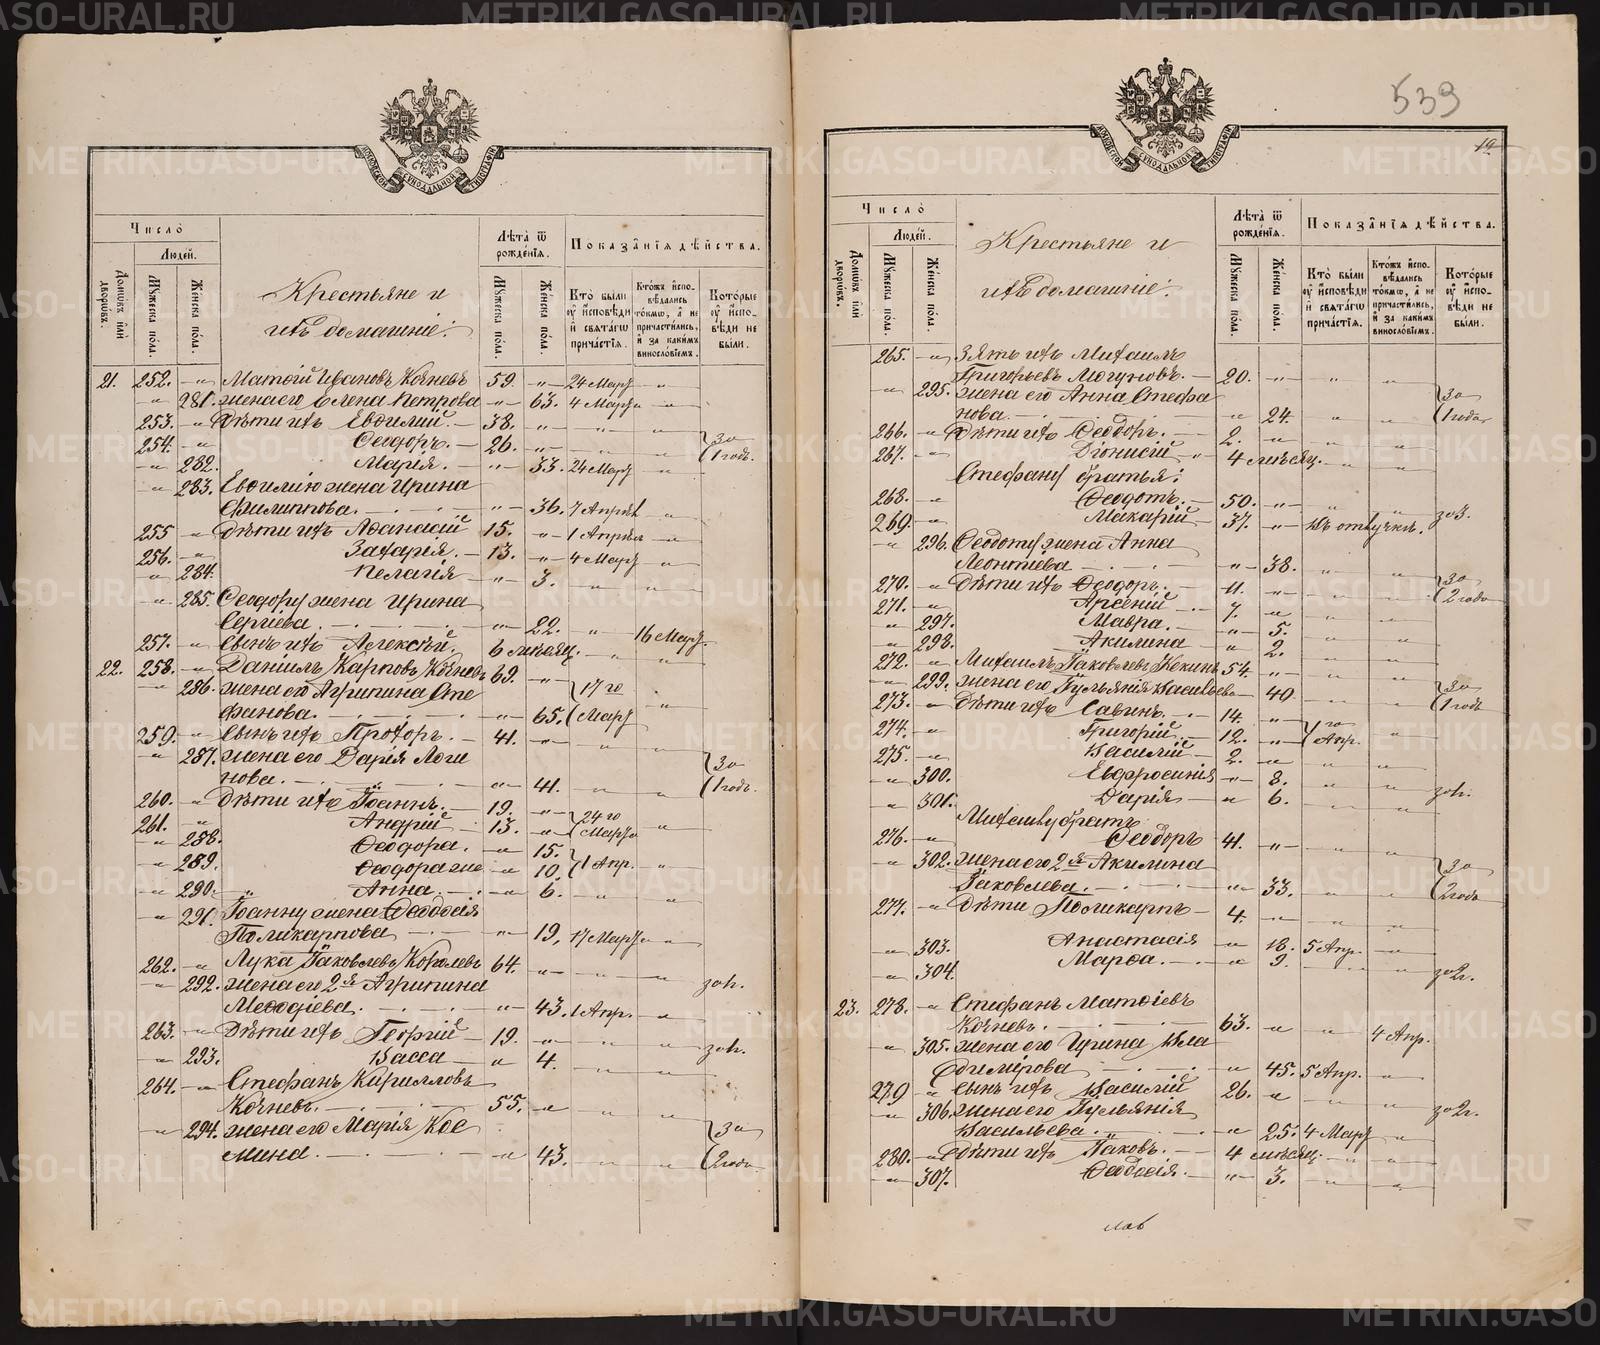 539
19
МОСКОВСКОЙ СѴНОДАЛЬНОЙ ТИПОГРАФІИ
Число
Людей.
Домовъ или дворовъ.
Мужеска пола.
Женска пола.
Крестьяне и
ихъ домашніе:
Лѣта ѿ рожденія.
Мужеска пола.
Женска пола.
Показанія дѣйства.
Кто были у исповѣди и святагѡ причастія.
Ктожъ исповѣдались токмѡ, а не причастились, и за какимъ винословіемъ.
Которые у исповѣди не были.
21. 252. -"- Матѳій Ивановъ Кочневъ 59. -"- 24 Мар. -"-
-"- 281. жена его Елена Петрова -"- 63. 4 Марта -"-
253. -"- Дѣти ихъ Евѳимій. - 38. -"- -"- -"-
254. -"- Ѳеодоръ. - 26. -"- -"- -"- за 1 годъ.
-"- 282. Марія. - -"- 33. 24 Мар. -"-
-"- 283. Евѳимію жена Ирина
Филиппова. -"- 36. 7 Апрѣл -"-
255 -"- Дѣти ихъ Аѳанасій 15. -"- 1 Апрѣл -"-
256. -"- Захарія. - 13. -"- 4 Мар. -"-
-"- 284. Пелагія -"- 3. -"- -"-
-"- 285. Ѳеодору жена Ирина
Сергіева. -"- 22. -"- 16 Мар.
257. -"- Сынъ ихъ Алексѣй. 6 мѣсяц. -"- -"-
22. 258. -"- Даніилъ Карповъ Кочневъ 69. -"-
-"- 286. жена его Агрипина Сте
фанова. -"- 65. 17 го Мар. -"-
259. -"- Сынъ ихъ Прохоръ. - 41. -"- -"- -"-
-"- 287. жена его Дарія Логи
нова. -"- 41. -"- -"- за 1 годъ.
260. -"- Дѣти ихъ Іоаннъ. - 19. -"- 24 го
261. -"- Андрій 13. -"- Марта -"-
-"- 288. Ѳеодора. -"- 15.
-"- 289. Ѳеодора же -"- 10. 1 Апр. -"-
-"- 290. -"- Анна. -"- 6. -"- -"-
-"- 291. Іоанну жена Ѳеодосія
Поликарпова -"- 19, 17 Марта -"-
262. -"- Лука Іаковлевъ Королевъ 64. -"- -"- -"- за 1г.
-"- 292. жена его 2я Агрипина
Меѳодіева. -"- 43. 1 Апр. -"-
263. -"- Дѣти ихъ Георгій - 19. -"- -"- -"- за 1г.
-"- 293. Васса -"- 4. -"- -"-
264. -"- Стефанъ Кирилловъ
Кочневъ. 55. -"- -"- -"-
-"- 294. жена его Марія Кос
мина. -"- 43. -"- -"- за 2 года.
Число
Людей.
Домовъ или дворовъ.
Мужеска пола.
Женска пола.
Крестьяне и
ихъ домашніе:
Лѣта ѿ рожденія.
Мужеска пола.
Женска пола.
Показанія дѣйства.
Кто были у исповѣди и святагѡ причастія.
Ктожъ исповѣдались токмѡ, а не причастились, и за какимъ винословіемъ.
Которые у исповѣди не были.
265. -"- Зять ихъ Михаилъ
Григорьевъ Могуновъ. - 20. -"- -"- -"-
-"- 295. жена его Анна Стефа
нова. -"- 24. -"- -"- за 1 годъ
266. -"- Дѣти ихъ Ѳеодоръ. - 2. -"- -"- -"-
267. -"- Діонисій -"- 4 мѣсяц. -"- -"-
Стефану братья:
268. -"- Ѳеодотъ. - 50. -"- -"- -"- за 3.
269. -"- Макарій 37. -"- Въ отлучкѣ.
-"- 296. Ѳеодоту жена Анна
Леонтіева -"- 38. -"- -"-
270. -"- Дѣти ихъ Ѳеодоръ. - 11. -"- -"- -"- за 2 года
271. -"- Арсеній 7. -"- -"- -"-
-"- 297. Мавра. -"- 5. -"- -"-
-"- 298. Акилина -"- 2. -"- -"-
272. -"- Михаилъ Іаковлевъ Кокинъ 54. -"- -"- -"-
-"- 299. жена его Іульянія Васильева -"- 40. -"- -"- за 1 годъ
273. -"- Дѣти ихъ Савинъ. - 14. -"- 1 го
274. -"- Григорій. 12. -"- Апр. -"-
275. -"- Василій 2. -"- -"- -"-
-"- 300. Евфросинія -"- 8. -"- -"- за 1г.
-"- 301. Дарія -"- 6. -"- -"-
Михаилу братъ
276. -"- Ѳеодоръ 41. -"-
-"- 302. жена его 2я Акилина
Іаковлева. -"- 33. -"- -"- за 2 года
277. -"- Дѣти Поликарпъ - 4. -"- -"-
-"- 303. Анастасія -"- 18. 5 Апр. -"-
-"- 304. Марѳа. -"- 9. -"- -"- за 2г.
23. 278. -"- Стефанъ Матѳіевъ
Кочневъ. 63. -"- -"- 4 Апр.
-"- 305. жена его Ирина Вла
димірова -"- 45. 5 Апр. -"-
279 -"- Сынъ ихъ Василій 26. -"- -"- -"- за 2г.
-"- 306. жена его Іульянія
Васильева. -"- 25. 4 Мар. -"-
280. -"- Дѣти ихъ Іаковъ. - 4 мѣсяц. -"- -"-
-"- 307. Ѳеодосія. -"- 3. -"- -"-
METRIKI.GASO-URAL.RU